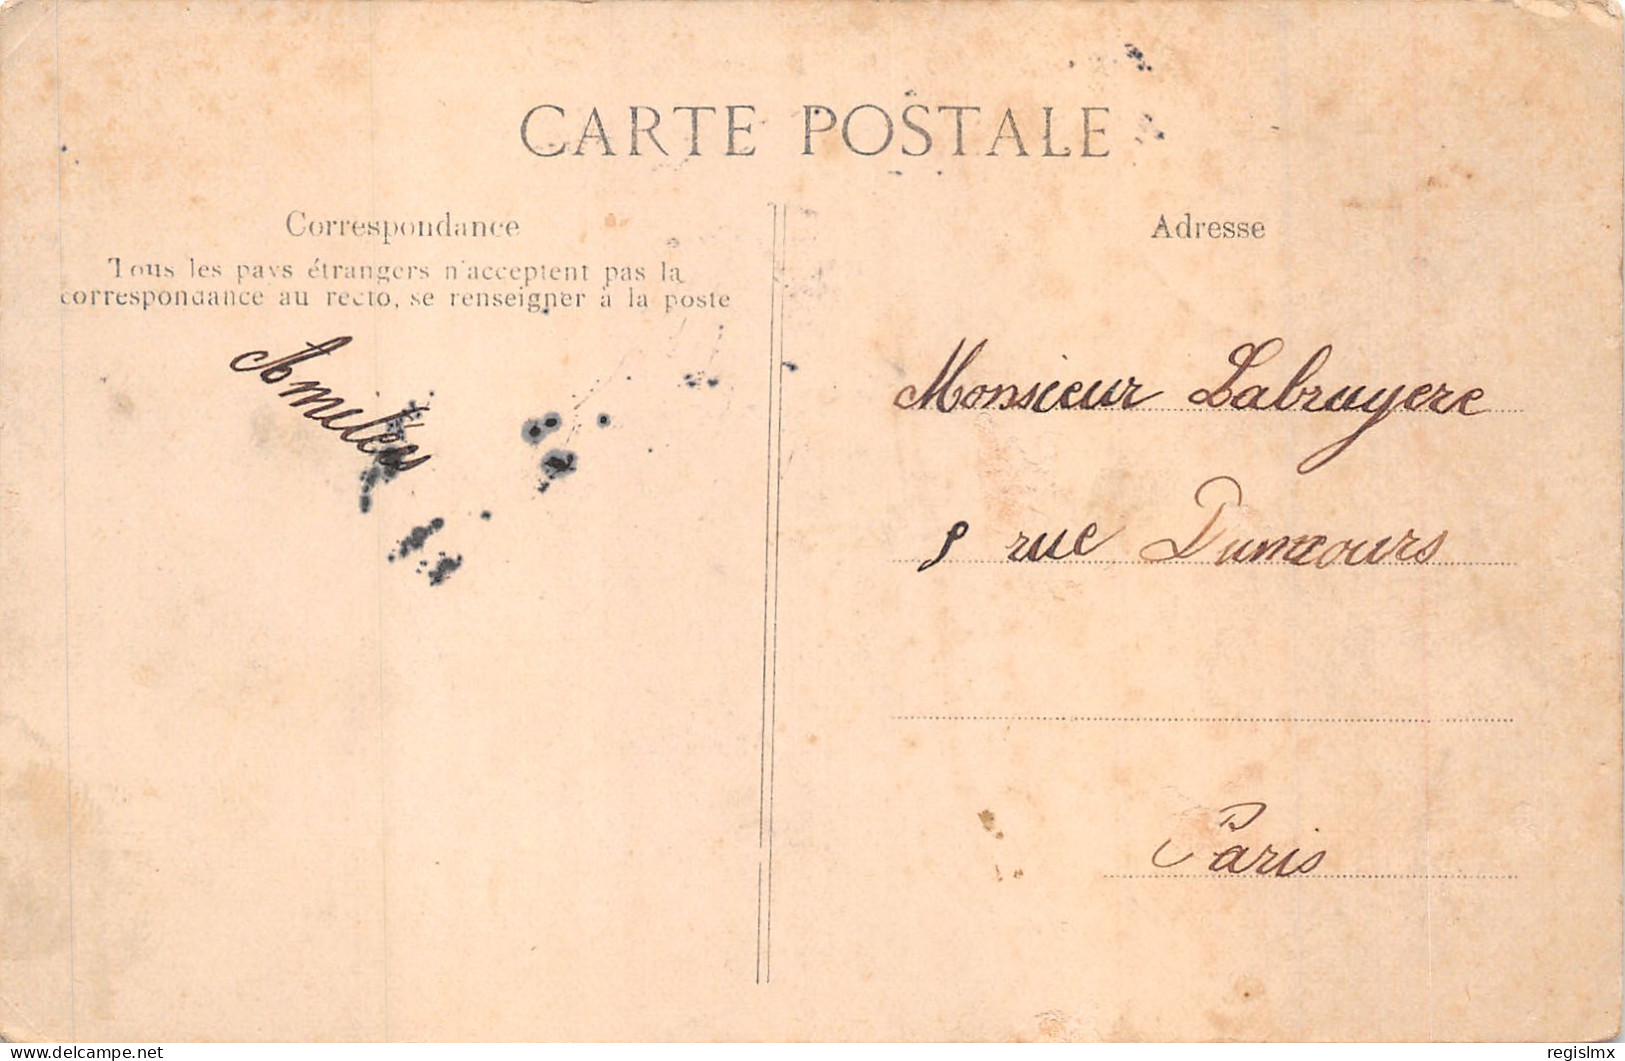 CARTE POSTALE
Correspondance
Tous les pays étrangers n'acceptent pas la
correspondance au recto, se renseigner à la poste
Amitiés
Adresse
Monsieur Labruyere
rue
Paris
www.delcampe.net
regislmx